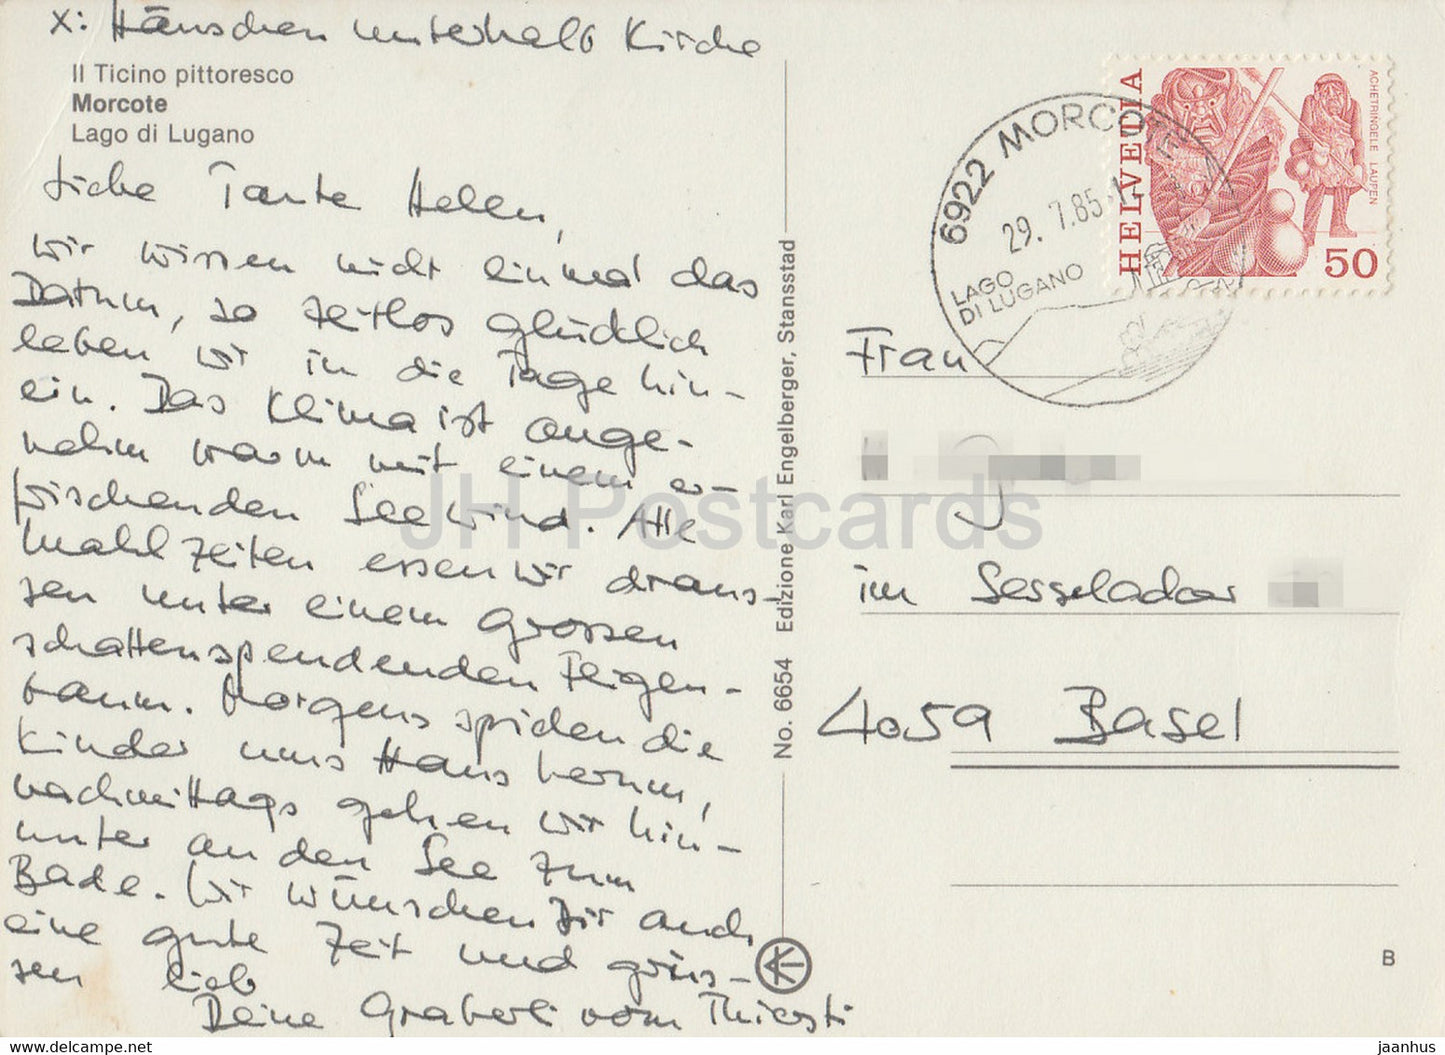 x: Häuschen unterhalb Kirche
Il Ticino pittoresco
Morcote
Lago di Lugano
Liebe Tante Helen,
wir wissen nicht einmal das
Datum, so zeitlos glücklich
leben wir in die Tage hin-
ein. Das Klima ist ange-
nehm warm mit einem er-
frischenden Seewind. Alle
Mahlzeiten essen wir draus-
sen unter einem grossen
schattenspendenden Feigen-
baum. Morgens spielen die
Kinder ums Haus herum,
nachmittags gehen wir hin-
unter an den See zum
Bade. Wir wünschen Dir auch
eine gute Zeit und grüs-
sen lieb
Deine vom
No. 6654 Edizione Karl Engelberger, Stansstad
6922 MORCOTE
29. 7.85
LAGO
DI LUGANO
HELVETIA
ACHETRINGELE LAUPEN
50
Frau
im Sesselacker
4059 Basel
B
JH Postcards
https://www.delcampe.net
jaanhus